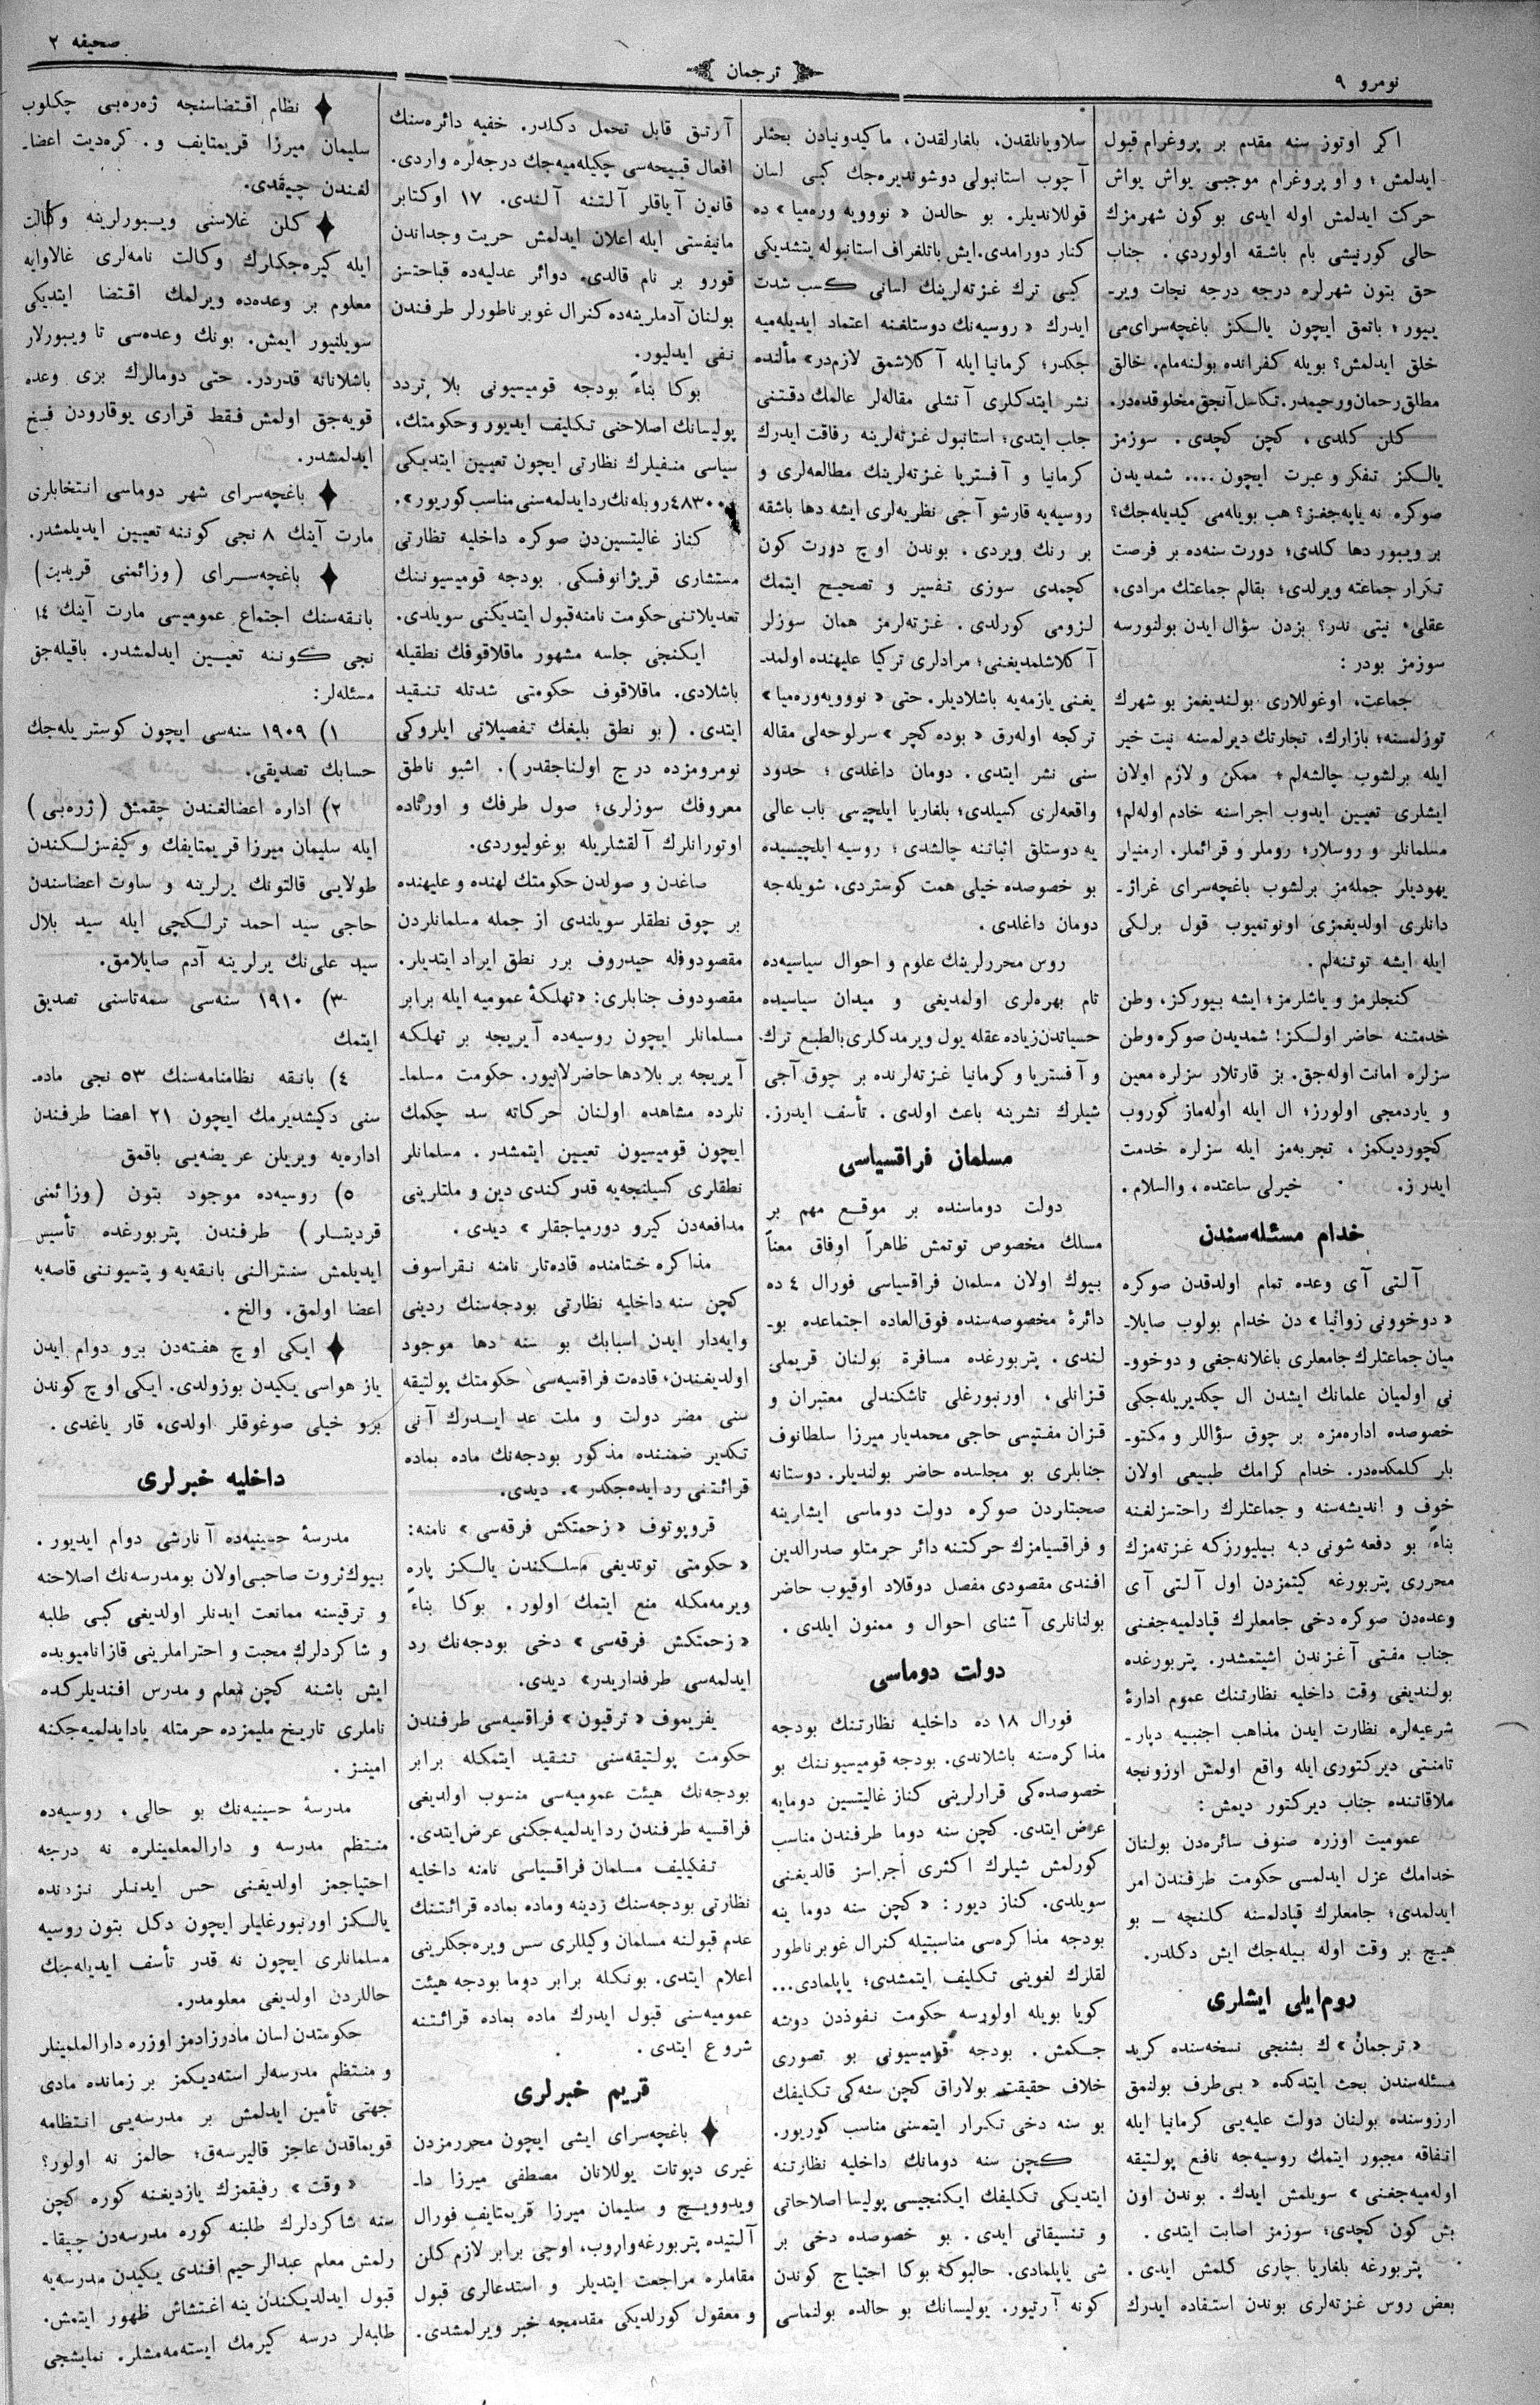 نومرو ٩
ترجمان
صحيفه ٢
اكر اوتوز سنه مقدم بر پروغرام قبول
ايدلمش ؛ و او پروغرام موجبى يواش يواش
حركت ايدلمش اوله ايدى بوكون شهرمزك
حالى كورنيشى بام باشقه اولوردى . جناب
حق بتون شهرلره درجه درجه نجات وير‌ـ
ييور ؛ باتمق ايچون يالكز باغچه‌سراى‌مى
خلق ايدلمش؟ بويله كفرانده بولنه‌مام. خالق
مطلق رحمان و رحيمدر. تكامل آنجق مخلوقده‌در.
كلن كلدى ، كچن كچدى . سوزمز
يالكز تفكر و عبرت ايچون .... شمديدن
صوكره نه ياپه‌جغز؟ هب بويله‌مى كيديله‌جك؟
بر ويبور دها كلدى؛ دورت سنه‌ده بر فرصت
تكرار جماعته ويرلدى؛ بقالم جماعتك مرادى،
عقلى، نيتى ندر؟ بزدن سؤال ايدن بولنورسه
سوزمز بودر :
جماعت، اوغوللارى بولنديغمز بو شهرك
توزلمسنه؛ بازارك، تجارتك ديرلمسنه نيت خير
ايله برلشوب چالشه‌لم؛ ممكن و لازم اولان
ايشلرى تعيين ايدوب اجراسنه خادم اوله‌لم؛
مسلمانلر و روسلار؛ روملر و قرائملر. ارمنيلر
يهوديلر جمله‌مز برلشوب باغچه‌سراى غراژ‌ـ
دانلرى اولديغمزى اونوتميوب قول برلكى
ايله ايشه توتنه‌لم .
كنجلرمز و ياشلرمز؛ ايشه بيوركز، وطن
خدمتنه حاضر اولكز! شمديدن صوكره وطن
سزلره امانت اوله‌جق. بز قارتلار سزلره معين
و ياردمجى اولورز؛ ال ايله اوله‌ماز كوروب
كچورديكمز، تجربه‌مز ايله سزلره خدمت
ايدرز. خيرلى ساعتده ، والسلام .
خدام مسئله‌سندن
آلتى آى وعده تمام اولدقدن صوكره
« دوخوونى زوانيا » دن خدام بولوب صايلا‌ـ
ميان جماعتلرك جامعلرى باغلانه‌جغى و دوخوو‌ـ
نى اولميان علمانك ايشدن ال چكديريله‌جكى
خصوصده اداره‌مزه بر چوق سؤاللر و مكتو‌ـ
بلر كلمكده‌در. خدام كرامك طبيعى اولان
خوف و انديشه‌سنه و جماعتلرك راحتسزلغنه
بناءً بو دفعه شونى ديه بيليورزكه غزته‌مزك
محررى پتربورغه كتمزدن اول آلتى آى
وعده‌دن صوكره دخى جامعلرك قپادلميه‌جغنى
جناب مفتى آغزندن اشيتمشدر. پتربورغده
بولنديغى وقت داخليه نظارتنك عموم ادارۀ
شرعيه‌لره نظارت ايدن مذاهب اجنبيه دپار‌ـ
تامنتى ديركتورى ايله واقع اولمش اوزونجه
ملاقاتنده جناب ديركتور ديمش :
عموميت اوزره صنوف سائره‌دن بولنان
خدامك عزل ايدلمسى حكومت طرفندن امر
ايدلمدى؛ جامعلرك قپادلمسنه كلنجه ــ بو
هيچ بر وقت اوله بيله‌جك ايش دكلدر.
روم‌ايلى ايشلرى
« ترجمان » ك بشنجى نسخه‌سنده كريد
مسئله‌سندن بحث ايتدكده « بى‌طرف بولنمق
ارزوسنده بولنان دولت عليه‌يى كرمانيا ايله
اتفاقه مجبور ايتمك روسيه‌جه نافع پولتيقه
اوله‌ميه‌جغنى » سويلمش ايدك . بوندن اون
بش كون كچدى؛ سوزمز اصابت ايتدى .
پتربورغه بلغاريا چارى كلمش ايدى .
بعض روس غزته‌لرى بوندن استفاده ايدرك
سلاويانلقدن، بلغارلقدن، ماكيدونيادن بحثلر
آچوب استانبولى دوشونديره‌جك كبى لسان
قوللانديلر. بو حالدن « نوويه وره‌ميا » ده
كنار دورامدى. ايش ياتلغراف استانبوله يتشديكى
كبى ترك غزته‌لرينك لسانى كسب شدت
ايدرك « روسيه‌نك دوستلغنه اعتماد ايديله‌ميه
جكدر؛ كرمانيا ايله آ كلاشمق لازم‌در » مألنده
نشر ايتدكلرى آتشلى مقاله‌لر عالمك دقتنى
جلب ايتدى؛ استانبول غزته‌لرينه رفاقت ايدرك
كرمانيا و آفستريا غزته‌لرينك مطالعه‌لرى و
روسيه‌يه قارشو آجى نظريه‌لرى ايشه دها باشقه
بر رنك ويردى . بوندن اوچ دورت كون
كچمدى سوزى تفسير و تصحيح ايتمك
لزومى كورلدى . غزته‌لرمز همان سوزلر
آ كلاشلمديغنى؛ مرادلرى تركيا عليهنده اولمد‌ـ
يغنى يازمه‌يه باشلاديلر. حتى « نوويه‌وره‌ميا »
تركجه اوله‌رق « بوده كچر » سرلوحه‌لى مقاله
سنى نشر ايتدى. دومان داغلدى ؛ حدود
واقعه‌لرى كسيلدى؛ بلغاريا ايلچيسى باب عالى
يه دوستلق اثباتنه چالشدى ؛ روسيه ايلچيسيده
بو خصوصده خيلى همت كوستردى، شويله‌جه
دومان داغلدى .
روس محررلرينك علوم و احوال سياسيه‌ده
تام بهره‌لرى اولمديغى و ميدان سياسيده
حسياتدن زياده عقله يول ويرمدكلرى بالطبع ترك
و آفستريا و كرمانيا غزته‌لرنده بر چوق آجى
شيلرك نشرينه باعث اولدى . تأسف ايدرز.
مسلمان فراقسياسى
دولت دوماسنده بر موقع مهم بر
مسلك مخصوص توتمش ظاهراً اوفاق معناً
بيوك اولان مسلمان فراقسياسى فورال ٤ ده
دائرۀ مخصوصه‌سنده فوق‌العاده اجتماعده بو‌ـ
لندى . پتربورغده مسافرة بولنان قريملى
قزانلى ، اورنبورغلى تاشكندلى معتبران و
قزان مفتيسى حاجى محمديار ميرزا سلطانوف
جنابلرى بو مجلسده حاضر بولنديلر. دوستانه
صحبتلردن صوكره دولت دوماسى ايشارينه
و فراقسيامزك حركتنه دائر حرمتلو صدرالدين
افندى مقصودى مفصل دوقلاد اوقيوب حاضر
بولنانلرى آشناى احوال و ممنون ايلدى .
دولت دوماسى
فورال ١٨ ده داخليه نظارتنك بودجه
مذاكره‌سنه باشلاندى. بودجه قوميسيوننك بو
خصوصده‌كى قرارلرينى كناز غاليتسين دومايه
عرض ايتدى. كچن سنه دوما طرفندن مناسب
كورلمش شيلرك اكثرى اجراسز قالديغنى
سويلدى. كناز ديور : « كچن سنه دوما ينه
بودجه مذاكره‌سى مناسبتيله كنرال غوبرناطور
لقلرك لغوينى تكليف ايتمشدى؛ ياپلمادى...
كويا بويله اولورسه حكومت نفوذدن دوشه
جكمش . بودجه قوميسيونى بو تصورى
خلاف حقيقت بولاراق كچن سنه‌كى تكليفك
بو سنه دخى تكرار ايتمسنى مناسب كوريور.
كچن سنه دومانك داخليه نظارتنه
ايتديكى تكليفك ايكنجيسى پوليسا اصلاحاتى
و تنسيقاتى ايدى . بو خصوصده دخى بر
شى ياپلمادى. حالبوكه بوكا احتياج كوندن
كونه آرتيور. پوليسانك بو حالده بولنماسى
آرتق قابل تحمل دكلدر. خفيه دائره‌سنك
افعال قبيحه‌سى چكيله‌ميه‌جك درجه‌لره واردى.
قانون آياقلر آلتنه آلندى. ١٧ اوكتابر
مانيفستى ايله اعلان ايدلمش حريت وجداندن
قورو بر نام قالدى. دوائر عدليه‌ده قباحتسز
بولنان آدملرينه‌ده كنرال غوبرناطورلر طرفندن
نفى ايدليور.
بوكا بناءً بودجه قوميسيونى بلا تردد
پوليسانك اصلاحنى تكليف ايديور و حكومتك،
سياسى منفيلرك نظارتى ايچون تعيين ايتديكى
روبله‌نك رد ايدلمه‌سنى مناسب كوريور ».
كناز غاليتسين‌دن صوكره داخليه نظارتى
مستشارى قريژانوفسكى بودجه قوميسيوننك
تعديلاتنى حكومت نامنه قبول ايتديكنى سويلدى.
ايكنجى جلسه مشهور ماقلاقوفك نطقيله
باشلادى. ماقلاقوف حكومتى شدتله تنقيد
ايتدى. ( بو نطق بليغك تفصيلاتى ايلروكى
نومرومزده درج اولناجقدر ). اشبو ناطق
معروفك سوزلرى؛ صول طرفك و اورتاده
اوتورانلرك آلقشلريله بوغوليوردى.
صاغدن و صولدن حكومتك لهنده و عليهنده
بر چوق نطقلر سويلندى از جمله مسلمانلردن
مقصودوفله حيدروف برر نطق ايراد ايتديلر.
مقصودوف جنابلرى: « تهلكۀ عموميه ايله برابر
مسلمانلر ايچون روسيه‌ده آيريجه بر تهلكه
آيريجه بر بلا دها حاضرلانيور. حكومت مسلما‌ـ
نلرده مشاهده اولنان حركاته سد چكمك
ايچون قوميسيون تعيين ايتمشدر . مسلمانلر
نطقلرى كسيلنجه‌يه قدر كندى دين و ملتلرينى
مدافعه‌دن كيرو دورمياجقلر » ديدى .
مذاكره ختامنده قاده‌تار نامنه نقراسوف
كچن سنه داخليه نظارتى بودجه‌سنك ردينى
وايه‌دار ايدن اسبابك بو سنه دها موجود
اولديغندن، قاده‌ت فراقسيه‌سى حكومتك پولتيقه
سنى مضر دولت و ملت عد ايدرك آنى
تكدير ضمننده مذكور بودجه‌نك ماده بماده
قرائتنى رد ايده‌جكدر ». ديدى.
قروپوتوف « زحمتكش فرقه‌سى » نامنه:
« حكومتى توتديغى مسلكندن يالكز پاره
ويرمه‌مكله منع ايتمك اولور . بوكا بناءً
« زحمتكش فرقه‌سى » دخى بودجه‌نك رد
ايدلمه‌سى طرفداريدر» ديدى.
يفريموف « ترقيون » فراقسيه‌سى طرفندن
حكومت پولتيقه‌سنى تنقيد ايتمكله برابر
بودجه‌نك هيئت عموميه‌سى منسوب اولديغى
فراقسيه طرفندن رد ايدلميه‌جكنى عرض ايتدى.
تفكيليف مسلمان فراقسياسى نامنه داخليه
نظارتى بودجه‌سنك ردينه و ماده بماده قرائتنك
عدم قبولنه مسلمان وكيللرى سس ويره‌جكلرينى
اعلام ايتدى. بونكله برابر دوما بودجه هيئت
عموميه‌سنى قبول ايدرك ماده بماده قرائتنه
شروع ايتدى .
قريم خبرلرى
باغچه‌سراى ايشى ايچون محررمزدن
غيرى دپوتات يوللانان مصطفى ميرزا دا‌ـ
ويدوويچ و سليمان ميرزا قريمتايف فورال
آلتيده پتربورغه واروب، اوچى برابر لازم كلن
مقاملره مراجعت ايتديلر و استدعالرى قبول
و معقول كورلديكى مقدمجه خبر ويرلمشدى.
نظام اقتضاسنجه ژه‌ره‌بى چكلوب
سليمان ميرزا قريمتايف و. كره‌ديت اعضا‌ـ
لغندن چيقدى.
كلن غلاسنى ويبورلرينه وكالت
ايله كيره‌جكلرك وكالت نامه‌لرى غالاوايه
معلوم بر وعده‌ده ويرلمك اقتضا ايتديكى
سويلنيور ايمش. بونك وعده‌سى تا ويبورلار
باشلانانه قدردر. حتى دومالرك برى وعده
قويه‌جق اولمش فقط قرارى يوقارودن فسخ
ايدلمشدر.
باغچه‌سراى شهر دوماسى انتخابلرى
مارت آينك ٨ نجى كوننه تعيين ايديلمشدر.
باغچه‌سراى (وزائمنى قريديت)
بانقه‌سنك اجتماع عموميسى مارت آينك ١٤
نجى كوننه تعيين ايدلمشدر. باقيله‌جق
مسئله‌لر:
١) ١٩٠٩ سنه‌سى ايچون كوستريله‌جك
حسابك تصديقى.
٢) اداره اعضالغندن چقمش (ژره‌بى)
ايله سليمان ميرزا قريمتايفك و كيفسزلكندن
طولايى قالتونك يرلرينه و ساوت اعضاسندن
حاجى سيد احمد ترلكچى ايله سيد بلال
سيد على‌نك يرلرينه آدم صايلامق.
٣) ١٩١٠ سنه‌سى سمه‌تاسنى تصديق
ايتمك
٤) بانقه نظامنامه‌سنك ٥٣ نجى ماده‌ـ
سنى دكيشديرمك ايچون ٢١ اعضا طرفندن
اداره‌يه ويريلن عريضه‌يى باقمق
٥) روسيه‌ده موجود بتون (وزائمنى
قرديتلر) طرفندن پتربورغده تأسيس
ايديلمش سنترالنى بانقه‌يه و پنسيوننى قاصه‌يه
اعضا اولمق. والخ .
ايكى اوچ هفته‌دن برو دوام ايدن
ياز هواسى يكيدن بوزولدى. ايكى اوچ كوندن
برو خيلى صوغوقلر اولدى، قار ياغدى .
داخليه خبرلرى
مدرسۀ حسينيه‌ده آنارشى دوام ايديور .
بيوك ثروت صاحبى اولان بو مدرسه‌نك اصلاحنه
و ترقيسنه ممانعت ايدنلر اولديغى كبى طلبه
و شاكردلرك محبت و احتراملرينى قازاناميوبده
ايش باشنه كچن معلم و مدرس افنديلركده
ناملرى تاريخ مليمزده حرمتله ياد ايدلميه‌جكنه
امينز .
مدرسۀ حسينيه‌نك بو حالى ، روسيه‌ده
منتظم مدرسه و دارالمعلمينلره نه درجه
احتياجمز اولديغنى حس ايدنلر نزدنده
يالكز اورنبورغليلر ايچون دكل بتون روسيه
مسلمانلرى ايچون نه قدر تأسف ايديله‌جك
حاللردن اولديغى معلومدر.
حكومتدن لسان مادرزادمز اوزره دارالملمينلر
و منتظم مدرسه‌لر استه‌ديكمز بر زمانده مادى
جهتى تأمين ايدلمش بر مدرسه‌يى انتظامه
قويماقدن عاجز قاليرسه‌ق؛ حالمز نه اولور؟
« وقت » رفيقمزك يازديغنه كوره كچن
سنه شاكردلرك طلبنه كوره مدرسه‌دن چيقا‌ـ
رلمش معلم عبدالرحيم افندى يكيدن مدرسه‌يه
قبول ايدلديكندن ينه اغتشاش ظهور ايتمش.
طلبه‌لر درسه كيرمك ايسته‌مه‌مشلر. نمايشجى